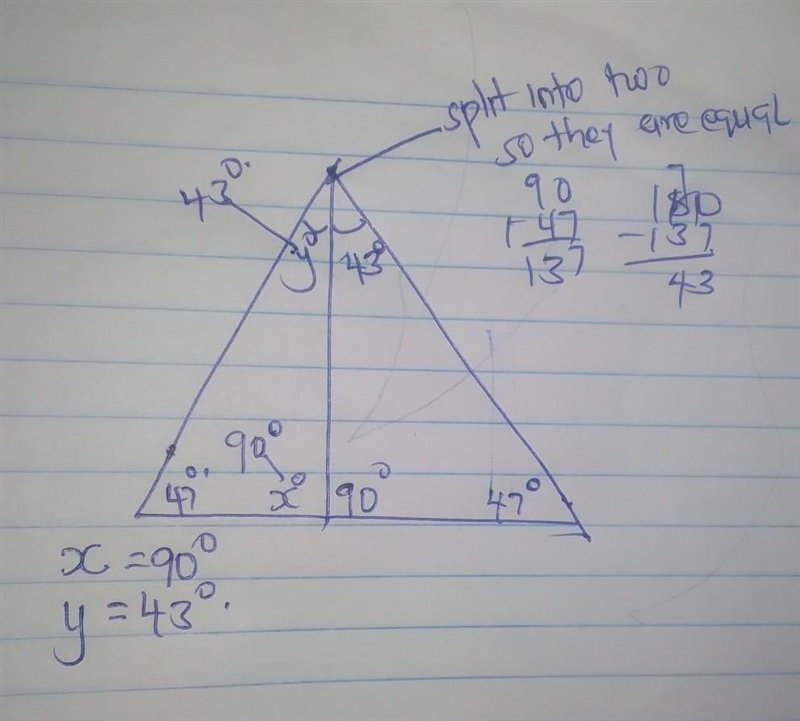 split into two
so they are equal
90
+ 47
137
180
- 137
43
43°.
y°
43°
47°.
90°
x°
90°
47°
x = 90°
y = 43°.